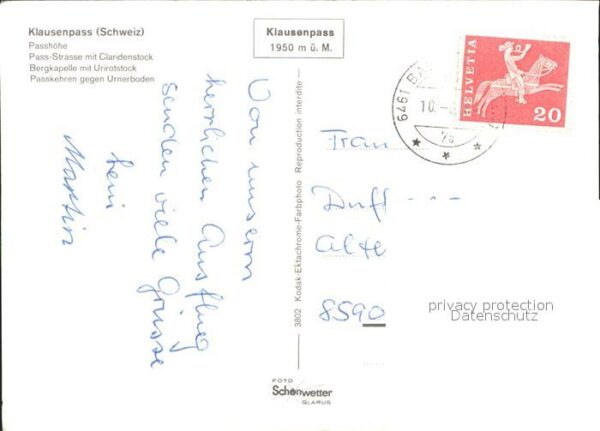 Klausenpass (Schweiz)
Passhöhe
Pass-Strasse mit Claridenstock
Bergkapelle mit Urirotstock
Passkehren gegen Urnerboden
Klausenpass
1950 m ü. M.
Von unserm
herrlichen Ausflug
senden viele Grüsse
Martin
3802 Kodak-Ektachrome-Farbphoto Reproduction interdite
HELVETIA
20
6461
10.
Frau
Alte
8590
privacy protection
Datenschutz
FOTO
Schönwetter
GLARUS